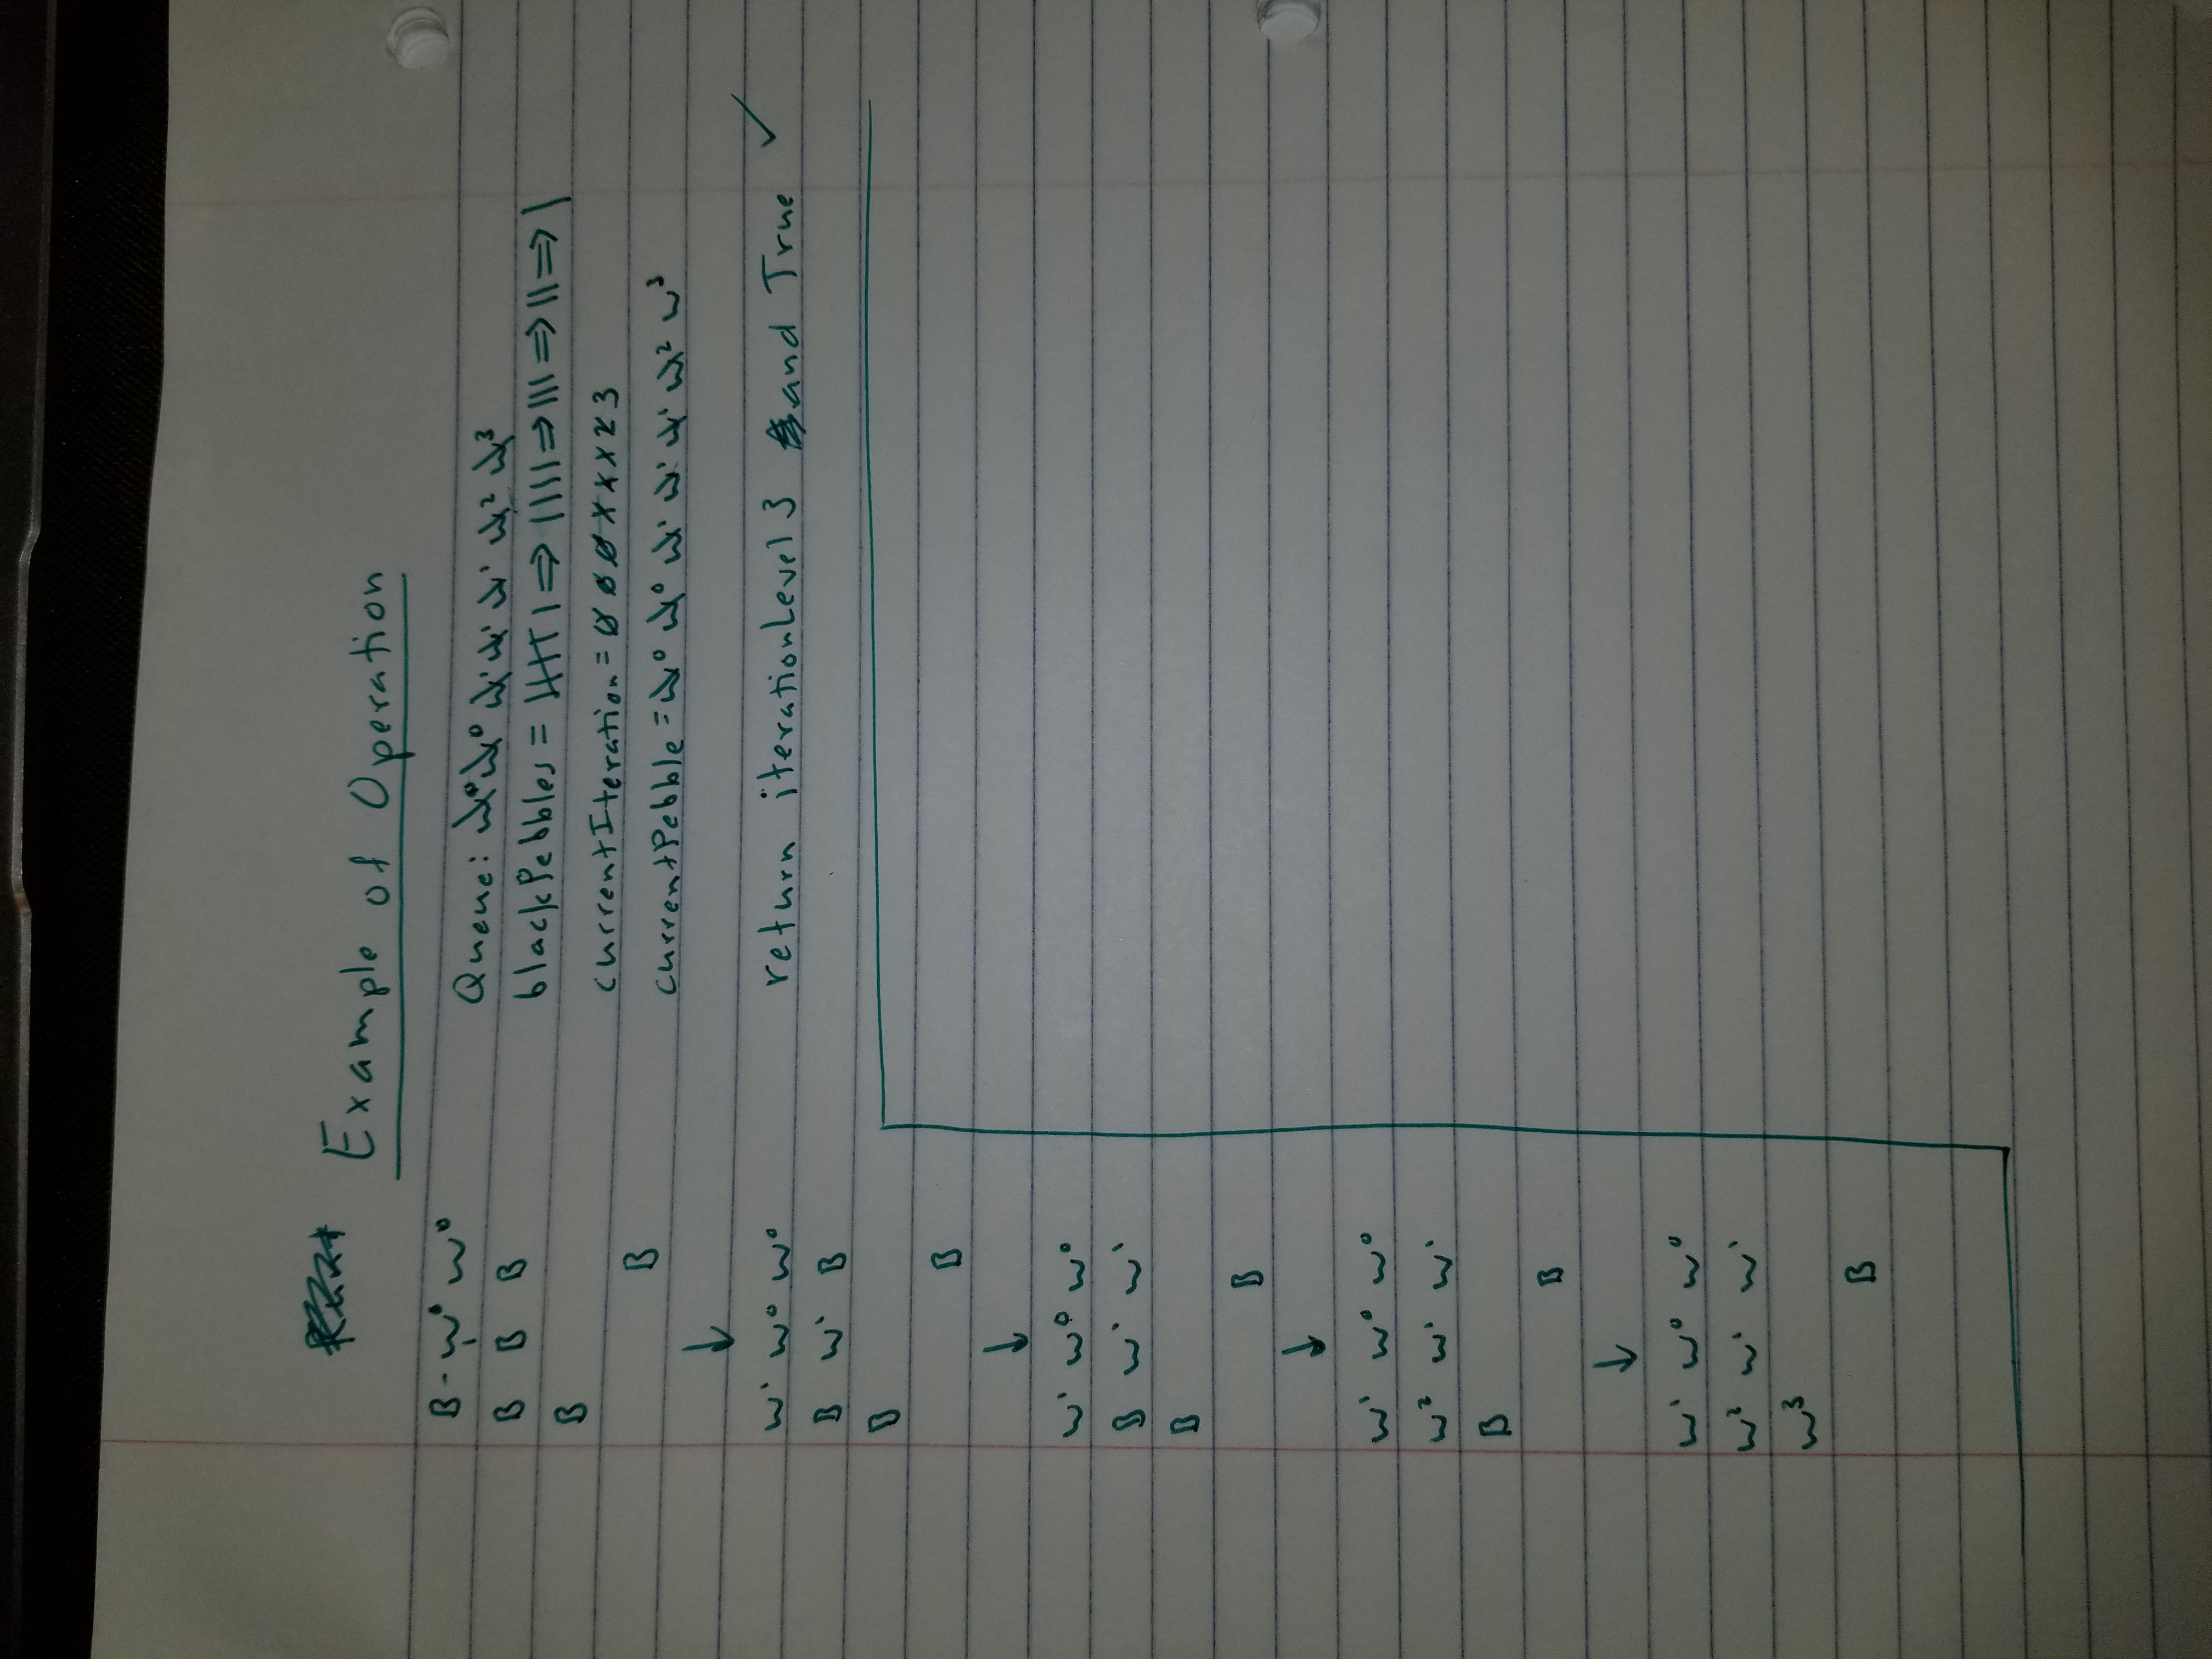 Example of Operation
B - w⁰ w⁰
B B B
B
B
↓
w¹ w⁰ w⁰
B w¹ B
B
B
↓
w¹ w⁰ w⁰
B w¹ w¹
B
B
↓
w¹ w⁰ w⁰
w² w¹ w¹
B
B
↓
w¹ w⁰ w⁰
w² w¹ w¹
w³
B
Queue: w⁰ w⁰ w¹ w¹ w¹ w² w³
blackPebbles = |||| | ⇒ |||| ⇒ ||| ⇒ || ⇒ |
currentIteration = 0 0 0 1 1 1 2 3
currentPebble = w⁰ w⁰ w¹ w¹ w¹ w² w³
return iterationLevel 3 and True ✓